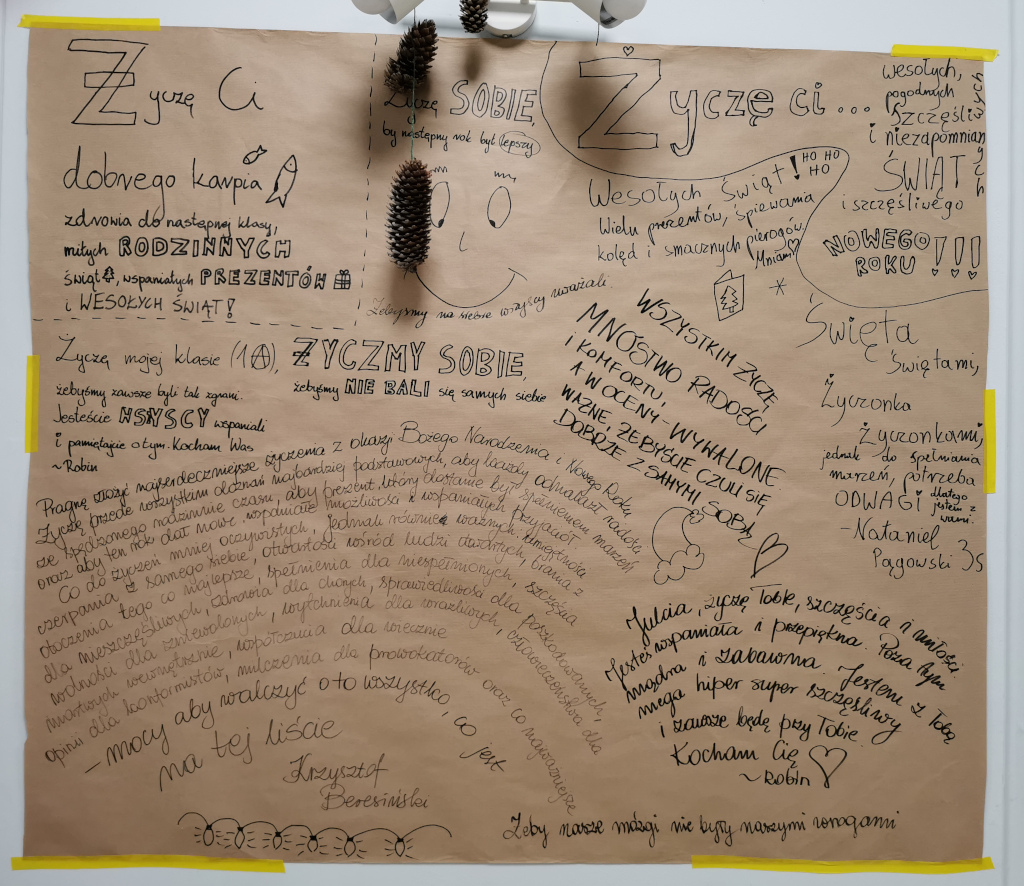 Życzę Ci
dobrego karpia
zdrowia do następnej klasy,
miłych RODZINNYCH
świąt, wspaniałych PREZENTÓW
i WESOŁYCH ŚWIĄT!
Życzę SOBIE,
by następny rok był lepszy
Żebyśmy na siebie wszyscy uważali.
Życzę ci...
Wesołych Świąt! HO HO HO
Wielu prezentów, śpiewania
kolęd i smacznych pierogów
Mniam!
wesołych,
pogodnych
Szczęśliwych
i niezapomnianych
ŚWIĄT
i szczęśliwego
NOWEGO
ROKU!!!
Życzę mojej klasie (1A),
żebyśmy zawsze byli tak zgrani.
Jesteście WSYSCY wspaniali
i pamiętajcie o tym. Kocham Was
~Robin
ŻYCZMY SOBIE,
żebyśmy NIE BALI się samych siebie
WSZYSTKIM ŻYCZĘ
MNÓSTWO RADOŚCI
I KOMFORTU,
A W OCENY - WYWALONE
WAŻNE, ŻEBYŚCIE CZULI SIĘ
DOBRZE Z SAMYMI SOBĄ
Święta
Świętami,
Życzonka
Życzonkami,
jednak do spełniania
marzeń, potrzeba
ODWAGI dlatego
jestem z
wami.
-Nataniel
Pągowski 3s
Pragnę złożyć najserdeczniejsze życzenia z okazji Bożego Narodzenia i Nowego Roku
Życzę przede wszystkim doznań najbardziej podstawowych, aby każdy odnalazł radość
ze spędzonego rodzinnie czasu, aby prezent, który dostanie był spełnieniem marzeń
oraz aby ten rok dał nowe, wspaniałe możliwości i wspaniałych przyjaciół.
Co do życzeń mniej oczywistych, jednak również ważnych: umiejętności
czerpania z samego siebie, otwartości wśród ludzi otwartych, brania z
otoczenia tego co najlepsze, spełnienia dla niespełnionych, szczęścia
dla nieszczęśliwych, zdrowia dla chorych, sprawiedliwości dla poszkodowanych,
wolności dla zniewolonych, wytchnienia dla wrażliwych, człowieczeństwa dla
martwych wewnętrznie, współczucia dla wiecznie
opinii dla konformistów, milczenia dla prowokatorów oraz co najważniejsze
- mocy aby walczyć o to wszystko, co jest
na tej liście
Krzysztof
Beresiński
Julcia, życzę Tobie, szczęścia i miłości.
Jesteś wspaniała i przepiękna. Poza tym
mądra i zabawna. Jestem z Tobą
mega hiper super szczęśliwy
i zawsze będę przy Tobie.
Kocham Cię
~Robin
Żeby nasze mózgi nie były naszymi wrogami